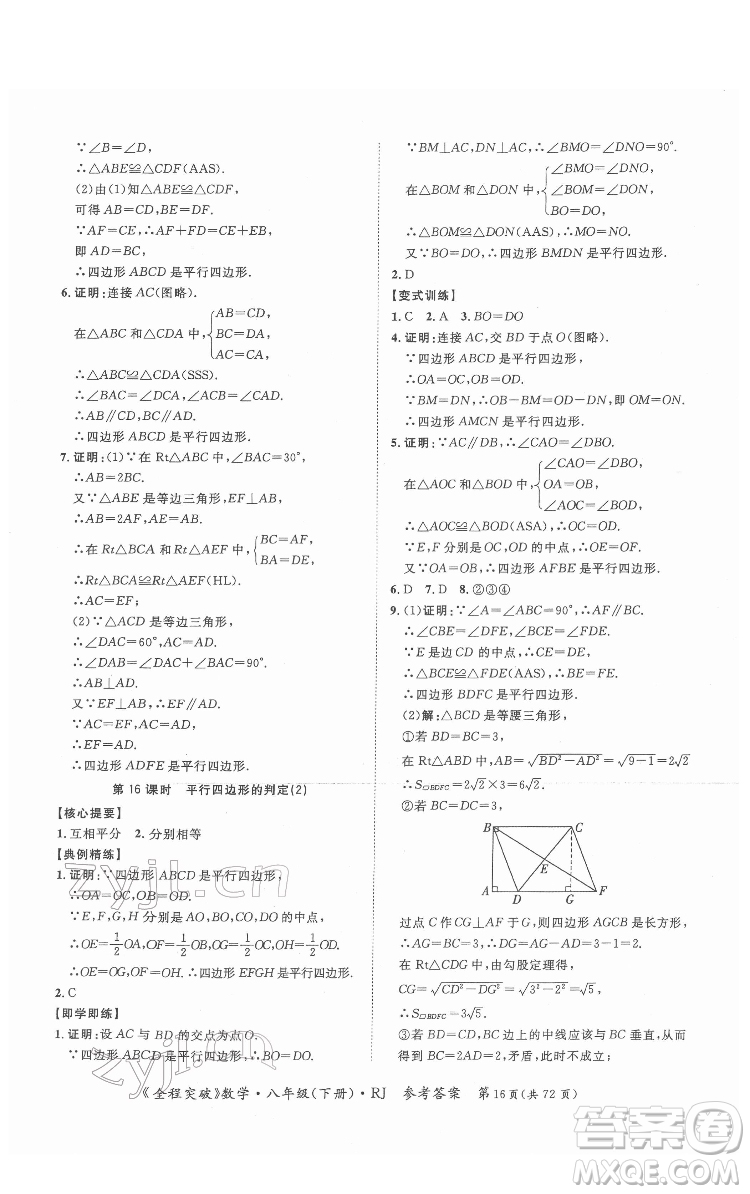 ∵∠B=∠D,
∴△ABE≌△CDF(AAS).
(2)由(1)知△ABE≌△CDF,
可得 AB=CD,BE=DF.
∵AF=CE,∴AF+DF=CE+BE.
即 AD=BC.
∴四边形 ABCD 是平行四边形.
6.证明:连接 AC(图略).
在△ABC 和△CDA 中,{AB=CD, BC=DA, AC=CA,
∴△ABC≌△CDA(SSS).
∴∠BAC=∠DCA,∠ACB=∠CAD.
∴AB∥CD,BC∥AD.
∴四边形 ABCD 是平行四边形.
7.证明:(1)∵在 Rt△ABC 中,∠BAC=30°,
∴AB=2BC.
又∵△ABE 是等边三角形,EF⊥AB,
∴AB=2AF,AE=AB.∴AF=BC.
∴在 Rt△BCA 和 Rt△AEF 中,{BC=AF, BA=DE,
∴Rt△BCA≌Rt△AEF(HL).
∴AC=EF;
(2)∵△ACD 是等边三角形,
∴∠DAC=60°,AC=AD.
∴∠DAB=∠DAC+∠BAC=90°.
∴AB⊥AD.
又∵EF⊥AB,∴EF∥AD.
∵AC=EF,AC=AD,
∴EF=AD.
∴四边形 ADFE 是平行四边形.
第 16 课时 平行四边形的判定(2)
【核心提要】
1.互相平分 2.分别相等
【典例精练】
1.证明:∵四边形 ABCD 是平行四边形,
∴OA=OC,OB=OD.
∵E,F,G,H 分别是 AO,BO,CO,DO 的中点,
∴OE=1/2OA,OF=1/2OB,OG=1/2OC,OH=1/2OD.
∴OE=OG,OF=OH.∴四边形 EFGH 是平行四边形.
2.C
【即学即练】
1.证明:设 AC 与 BD 的交点为点O.
∵四边形 ABCD 是平行四边形,∴BO=DO.
∵BM⊥AC,DN⊥AC,∴∠BMO=∠DNO=90°.
在△BOM 和△DON 中,{∠BMO=∠DNO, ∠BOM=∠DON, BO=DO,
∴△BOM≌△DON(AAS),∴MO=NO.
又∵BO=DO,∴四边形 BMDN 是平行四边形.
2.D
【变式训练】
1.C 2.A 3.BO=DO
4.证明:连接 AC,交 BD 于点O(图略).
∵四边形 ABCD 是平行四边形,
∴OA=OC,OB=OD.
∵BM=DN,∴OB-BM=OD-DN,即 OM=ON.
∴四边形 AMCN 是平行四边形.
5.证明:∵AC∥DB,∴∠CAO=∠DBO.
在△AOC 和△BOD 中,{∠CAO=∠DBO, OA=OB, ∠AOC=∠BOD,
∴△AOC≌△BOD(ASA),∴OC=OD.
∵E,F 分别是 OC,OD 的中点,∴OE=OF.
又∵OA=OB,∴四边形 AFBE 是平行四边形.
6.D 7.D 8.②③④
9.(1)证明:∵∠A=∠ABC=90°,∴AF∥BC.
∴∠CBE=∠DFE,∠BCE=∠FDE.
∵E是边 CD 的中点,∴CE=DE.
∴△BCE≌△FDE(AAS),∴BE=FE.
∴四边形 BDFC 是平行四边形.
(2)解:△BCD 是等腰三角形,
①若 BD=BC=3,
在 Rt△ABD 中,AB=√(BD²-AD²)=√(9-1)=2√2.
∴S▱BDFC=2√2×3=6√2.
②若 BC=DC=3,
B C
E
A D G F
过点 C 作 CG⊥AF 于 G,则四边形 AGCB 是矩形.
∴AG=BC=3,∴DG=AG-AD=3-1=2.
在 Rt△CDG 中,由勾股定理得
CG=√(CD²-DG²)=√(3²-2²)=√5,
∴S▱BDFC=3√5.
③若 BD=CD,则 BC 上的中线应该与 BC 垂直,从而
得到 BC=2AD=2,矛盾,此时不成立.
《全程突破》数学·八年级(下册)·RJ 参考答案 第16页(共 72 页)
zyjl.cn
zyjl.cn
答案圈
MXQE.COM